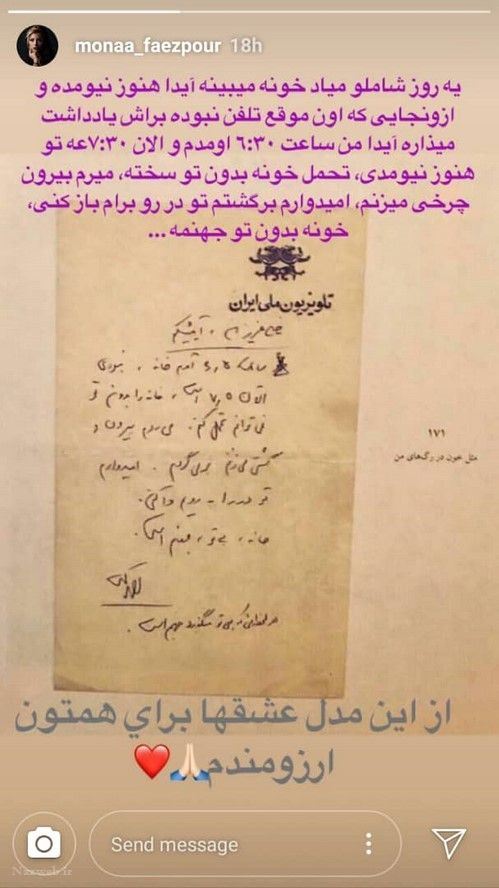 monaa_faezpour 18h
یه روز شاملو میاد خونه میبینه آیدا هنوز نیومده و
ازونجایی که اون موقع تلفن نبوده براش یادداشت
میذاره آیدا من ساعت ٦:٣٠ اومدم و الان ٧:٣٠عه تو
هنوز نیومدی، تحمل خونه بدون تو سخته، میرم بیرون
چرخی میزنم، امیدوارم برگشتم تو در رو برام باز کنی،
خونه بدون تو جهنمه ...
تلویزیون ملی ایران
ساعت ۶٫۵ آمدم خانه ، نبودی
الان ۷٫۵ است ، خانه را بدون تو
نمی‌توانم تحمل کنم. می‌روم بیرون و
گشتی می‌زنم برمی‌گردم . امیدوارم
تو در را به رویم وا کنی.
خانه ، بی تو ، جهنم است.
در لحظاتی که بی تو میگذرد جهنم است .
۱۷۱
مثل خون در رگ‌های من
از این مدل عشقها برای همتون
ارزومندم🙏🏻❤️
Send message
Nazweb.ir